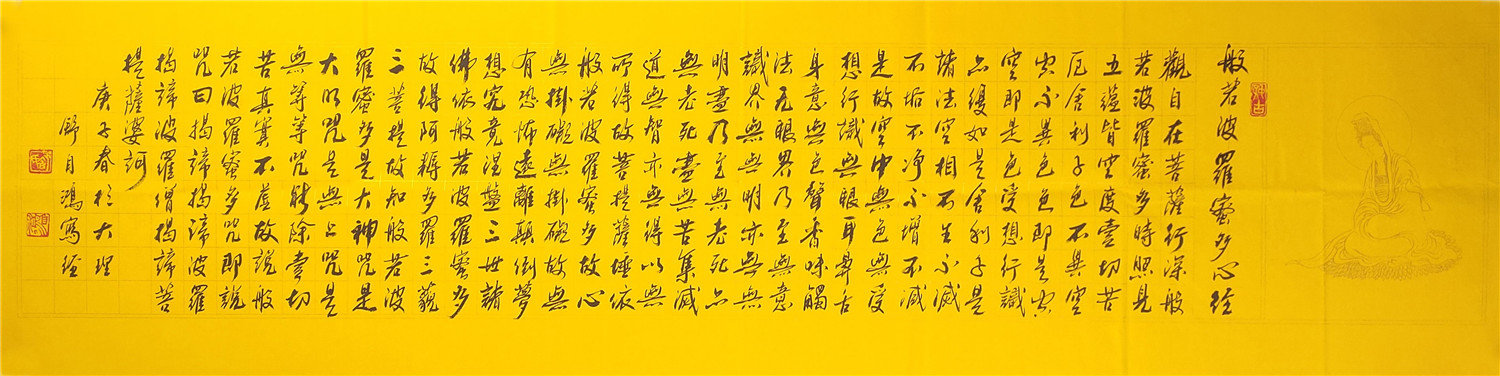 般若波羅蜜多心經
觀自在菩薩行深般
若波羅蜜多時照見
五蘊皆空度壹切苦
厄舍利子色不異空
空不異色色即是空
空即是色受想行識
亦復如是舍利子是
諸法空相不生不滅
不垢不淨不增不減
是故空中無色無受
想行識無眼耳鼻舌
身意無色聲香味觸
法无眼界乃至無意
識界無無明亦無無
明盡乃至無老死亦
無老死盡無苦集滅
道無智亦無得以無
所得故菩提薩埵依
般若波羅蜜多故心
無掛礙無掛礙故無
有恐怖遠離顛倒夢
想究竟涅盤三世諸
佛依般若波羅蜜多
故得阿耨多羅三藐
三菩提故知般若波
羅蜜多是大神咒是
大明咒是無上咒是
無等等咒能除壹切
苦真實不虛故說般
若波羅蜜多咒即說
咒曰揭諦揭諦波羅
揭諦波羅僧揭諦菩
提薩婆訶
庚子春於大理
舒自鴻寫經